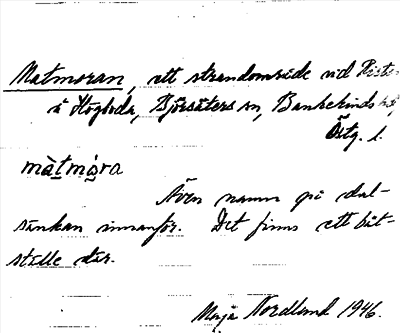 Matmoran, ett strandområde vid Risten
å Högboda, Björsäters sn, Bankekinds hd,
Östg. l.
màtmǫ́ra
Även namn på dal-
sänkan innanför. Det finns ett båt-
ställe där.
Maja Nordlund 1946.